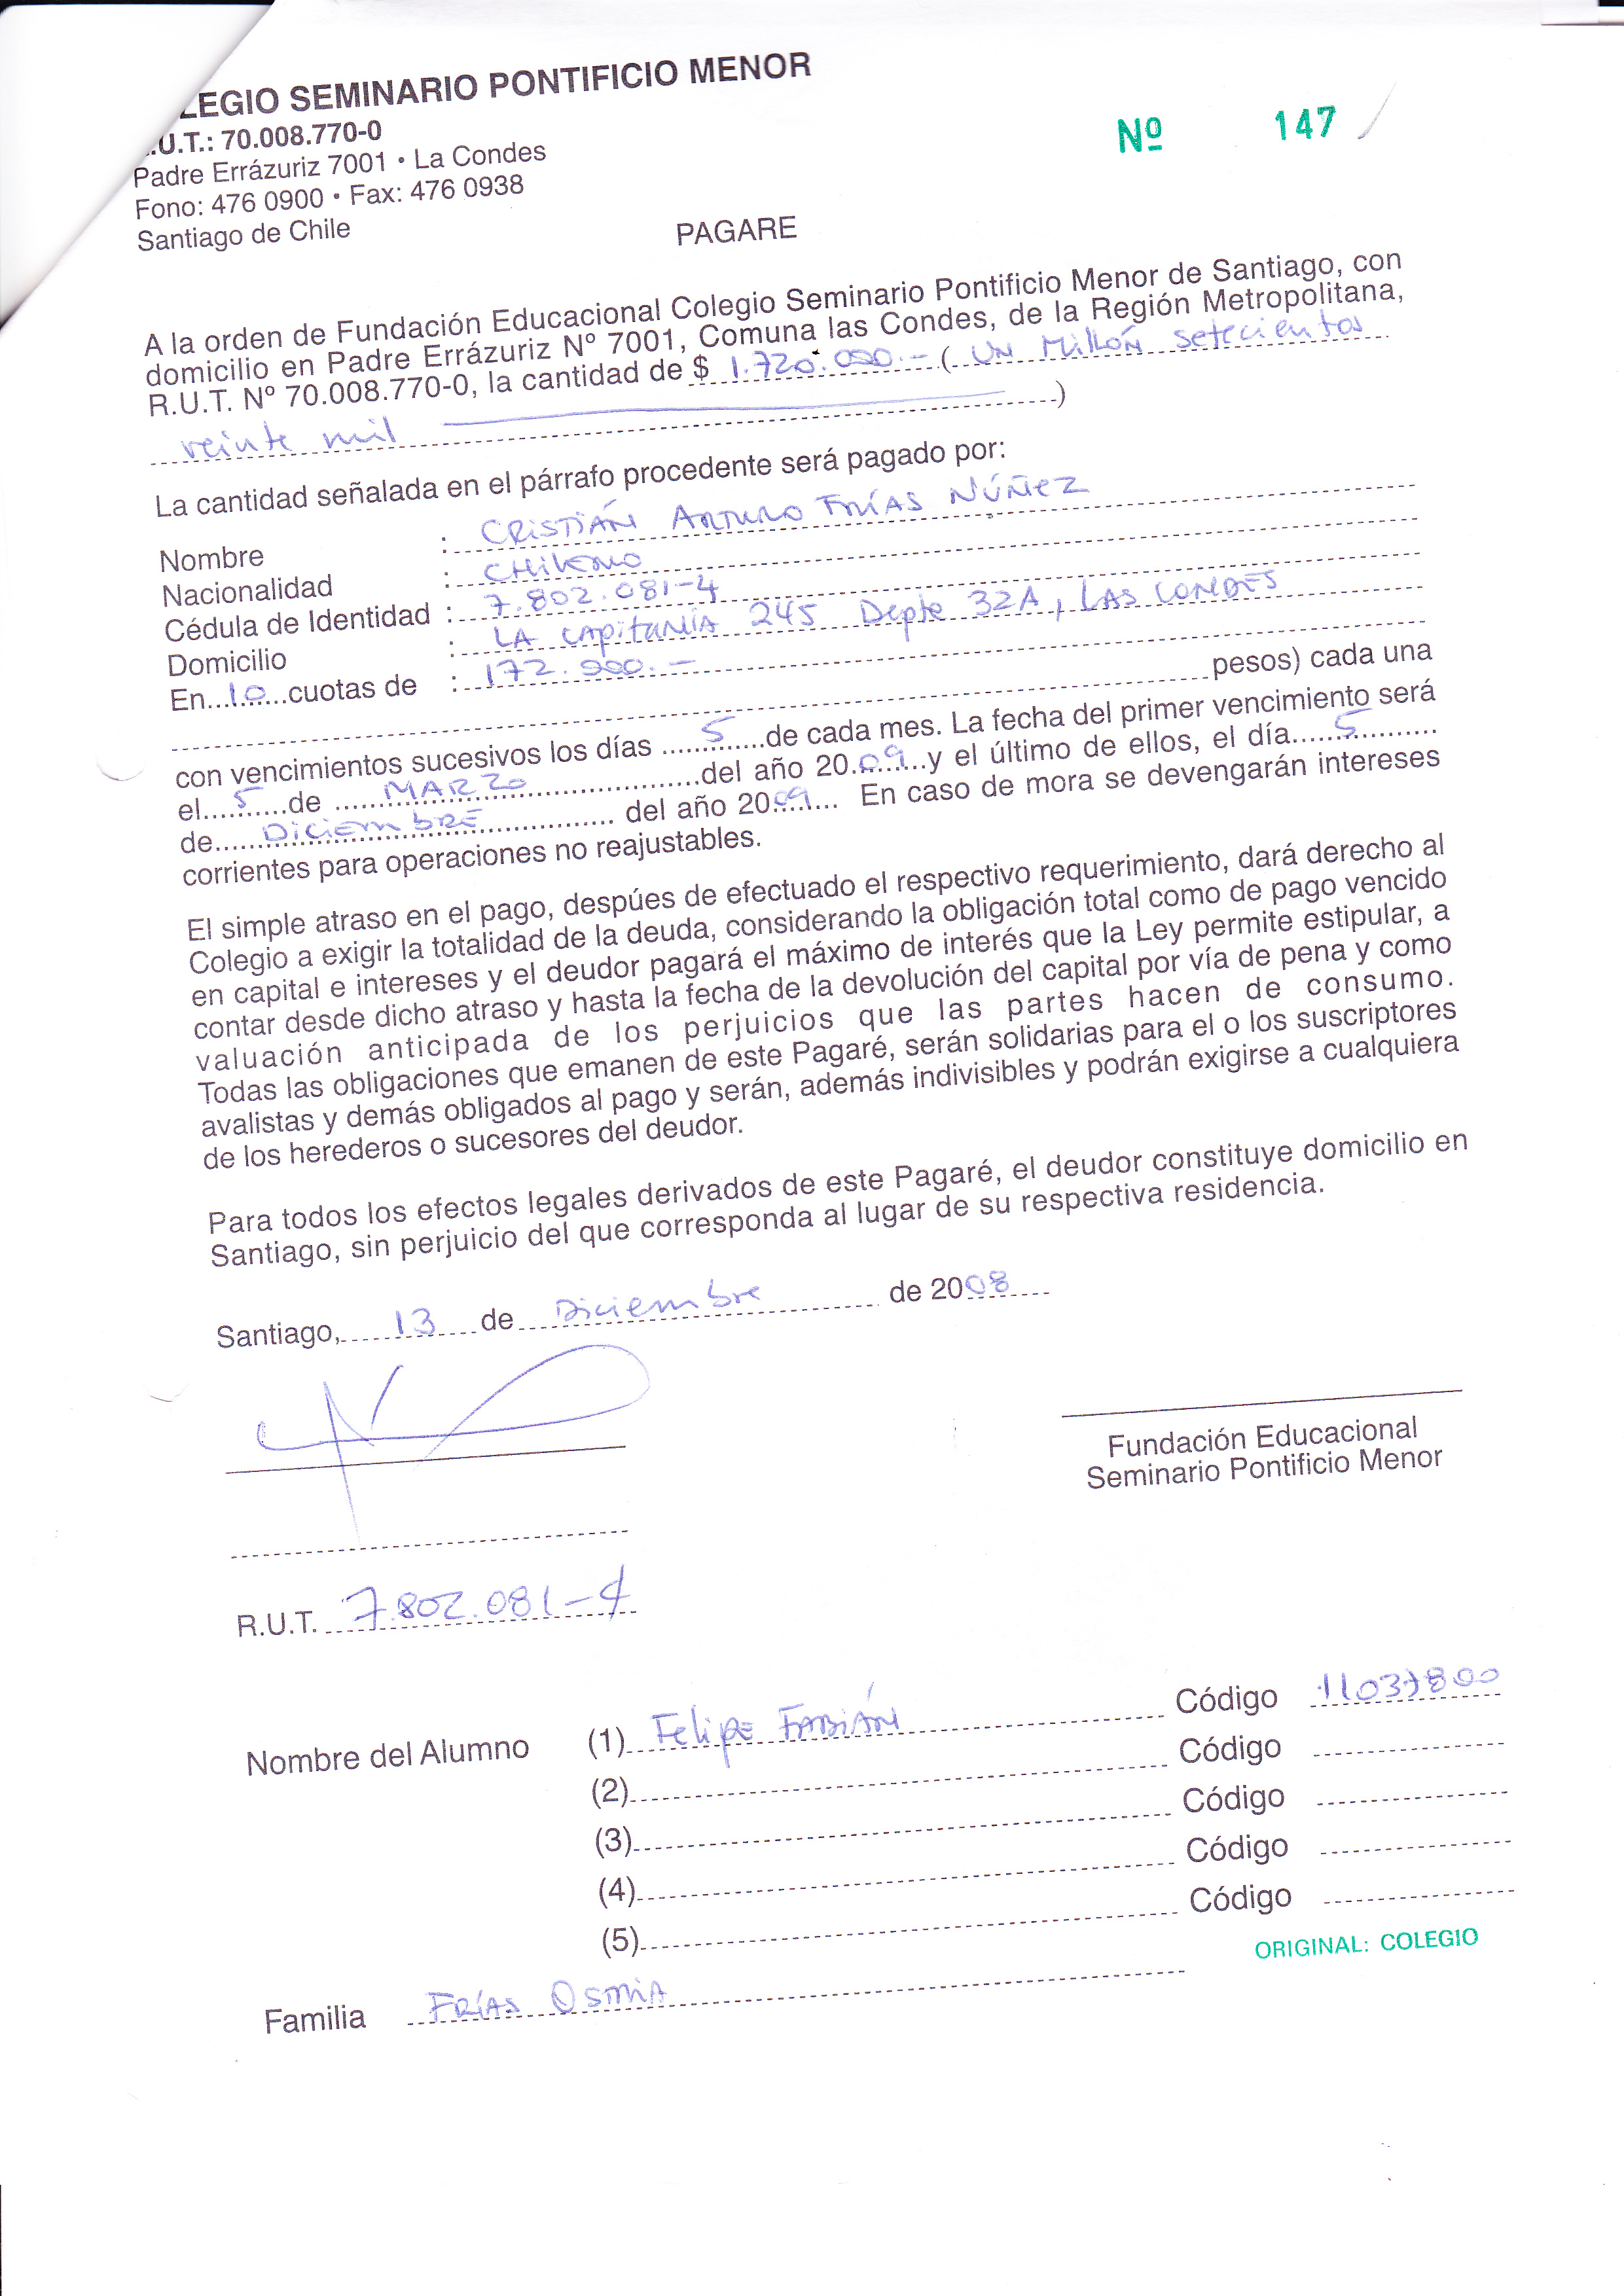 LEGIO SEMINARIO PONTIFICIO MENOR
.U.T.: 70.008.770-0
Padre Errázuriz 7001 • La Condes
Fono: 476 0900 • Fax: 476 0938
Santiago de Chile
Nº 147
PAGARE
A la orden de Fundación Educacional Colegio Seminario Pontificio Menor de Santiago, con
domicilio en Padre Errázuriz Nº 7001, Comuna las Condes, de la Región Metropolitana,
R.U.T. Nº 70.008.770-0, la cantidad de $ 1.720.000.- ( UN Millón setecientos
veinte mil )
La cantidad señalada en el párrafo procedente será pagado por:
Nombre : CRISTIÁN ARTURO FRÍAS NÚÑEZ
Nacionalidad : CHILENO
Cédula de Identidad : 7.802.081-4
Domicilio : LA CAPITANÍA 245 Depte 32A, LAS CONDES
En...10...cuotas de : 172.000.-
pesos) cada una
con vencimientos sucesivos los días 5 de cada mes. La fecha del primer vencimiento será
el 5 de MARZO del año 2009 y el último de ellos, el día 5
de DICIEMBRE del año 2009... En caso de mora se devengarán intereses
corrientes para operaciones no reajustables.
El simple atraso en el pago, despúes de efectuado el respectivo requerimiento, dará derecho al
Colegio a exigir la totalidad de la deuda, considerando la obligación total como de pago vencido
en capital e intereses y el deudor pagará el máximo de interés que la Ley permite estipular, a
contar desde dicho atraso y hasta la fecha de la devolución del capital por vía de pena y como
valuación anticipada de los perjuicios que las partes hacen de consumo.
Todas las obligaciones que emanen de este Pagaré, serán solidarias para el o los suscriptores
avalistas y demás obligados al pago y serán, además indivisibles y podrán exigirse a cualquiera
de los herederos o sucesores del deudor.
Para todos los efectos legales derivados de este Pagaré, el deudor constituye domicilio en
Santiago, sin perjuicio del que corresponda al lugar de su respectiva residencia.
Santiago, 13 de Diciembre de 2008
Fundación Educacional
Seminario Pontificio Menor
R.U.T. 7.802.081-4
Nombre del Alumno (1) Felipe FABIÁN Código 11037800
(2) Código
(3) Código
(4) Código
(5) Código
ORIGINAL: COLEGIO
Familia FRÍAS